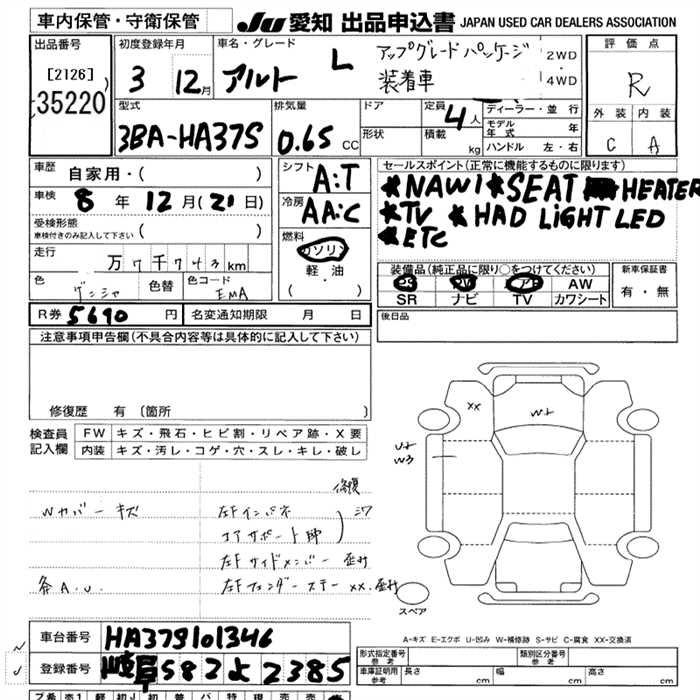 車内保管・守衛保管 JU 愛知 出品申込書 JAPAN USED CAR DEALERS ASSOCIATION
出品番号 初度登録年月 車名・グレード 評価点
[2126] 35220
3 12月 アルト L アップグレードパッケージ 装着車 2WD ・ 4WD R
型式 排気量 ドア 定員 ディーラー・並行 外装 内装
3BA-HA37S 0.65 CC 形状 4人 積載 kg モデル年式 年 C A
ハンドル 左・右
車歴 自家用・( ) シフト A:T セールスポイント(正常に機能するものに限ります)
車検 8年 12月(21日) 冷房 AA:C *NAWI *SEAT HEATER
受検形態 ( ) *TV *HAD LiGHT LED
車検付きのみ記入して下さい 燃料 *ETC
走行 万7千743km ガソリン 装備品(純正品に限り○をつけてください) 新車保証書
軽油 PS PW エアB AW 有・無
色 色替 色コード EMA (・) SR ナビ TV カワシート
R券 5690円 名変通知期限 月 日 後日品
注意事項申告欄(不具合内容等は具体的に記入して下さい)
修復歴 有 〔箇所 〕
検査員 記入欄 FW キズ・飛石・ヒビ割・リペア跡・X要
内装 キズ・汚レ・コゲ・穴・スレ・キレ・破レ
XX W+ U+ W3
修復
Wカバーキズ 左Fインパネ ミワ
コアサポート
左Fサイドメンバー 歪ミ
各A.U. 左Fフェンダーステー XX.歪ミ
スペア
A-キズ E-エクボ U-凹み W-補修跡 S-サビ C-腐食 XX-交換済
車台番号 HA37S101346
登録番号 岐阜 582 よ 2385
形式指定番号 参考 類別区分番号 参考
車庫証明用 参考 長さ 幅 高さ